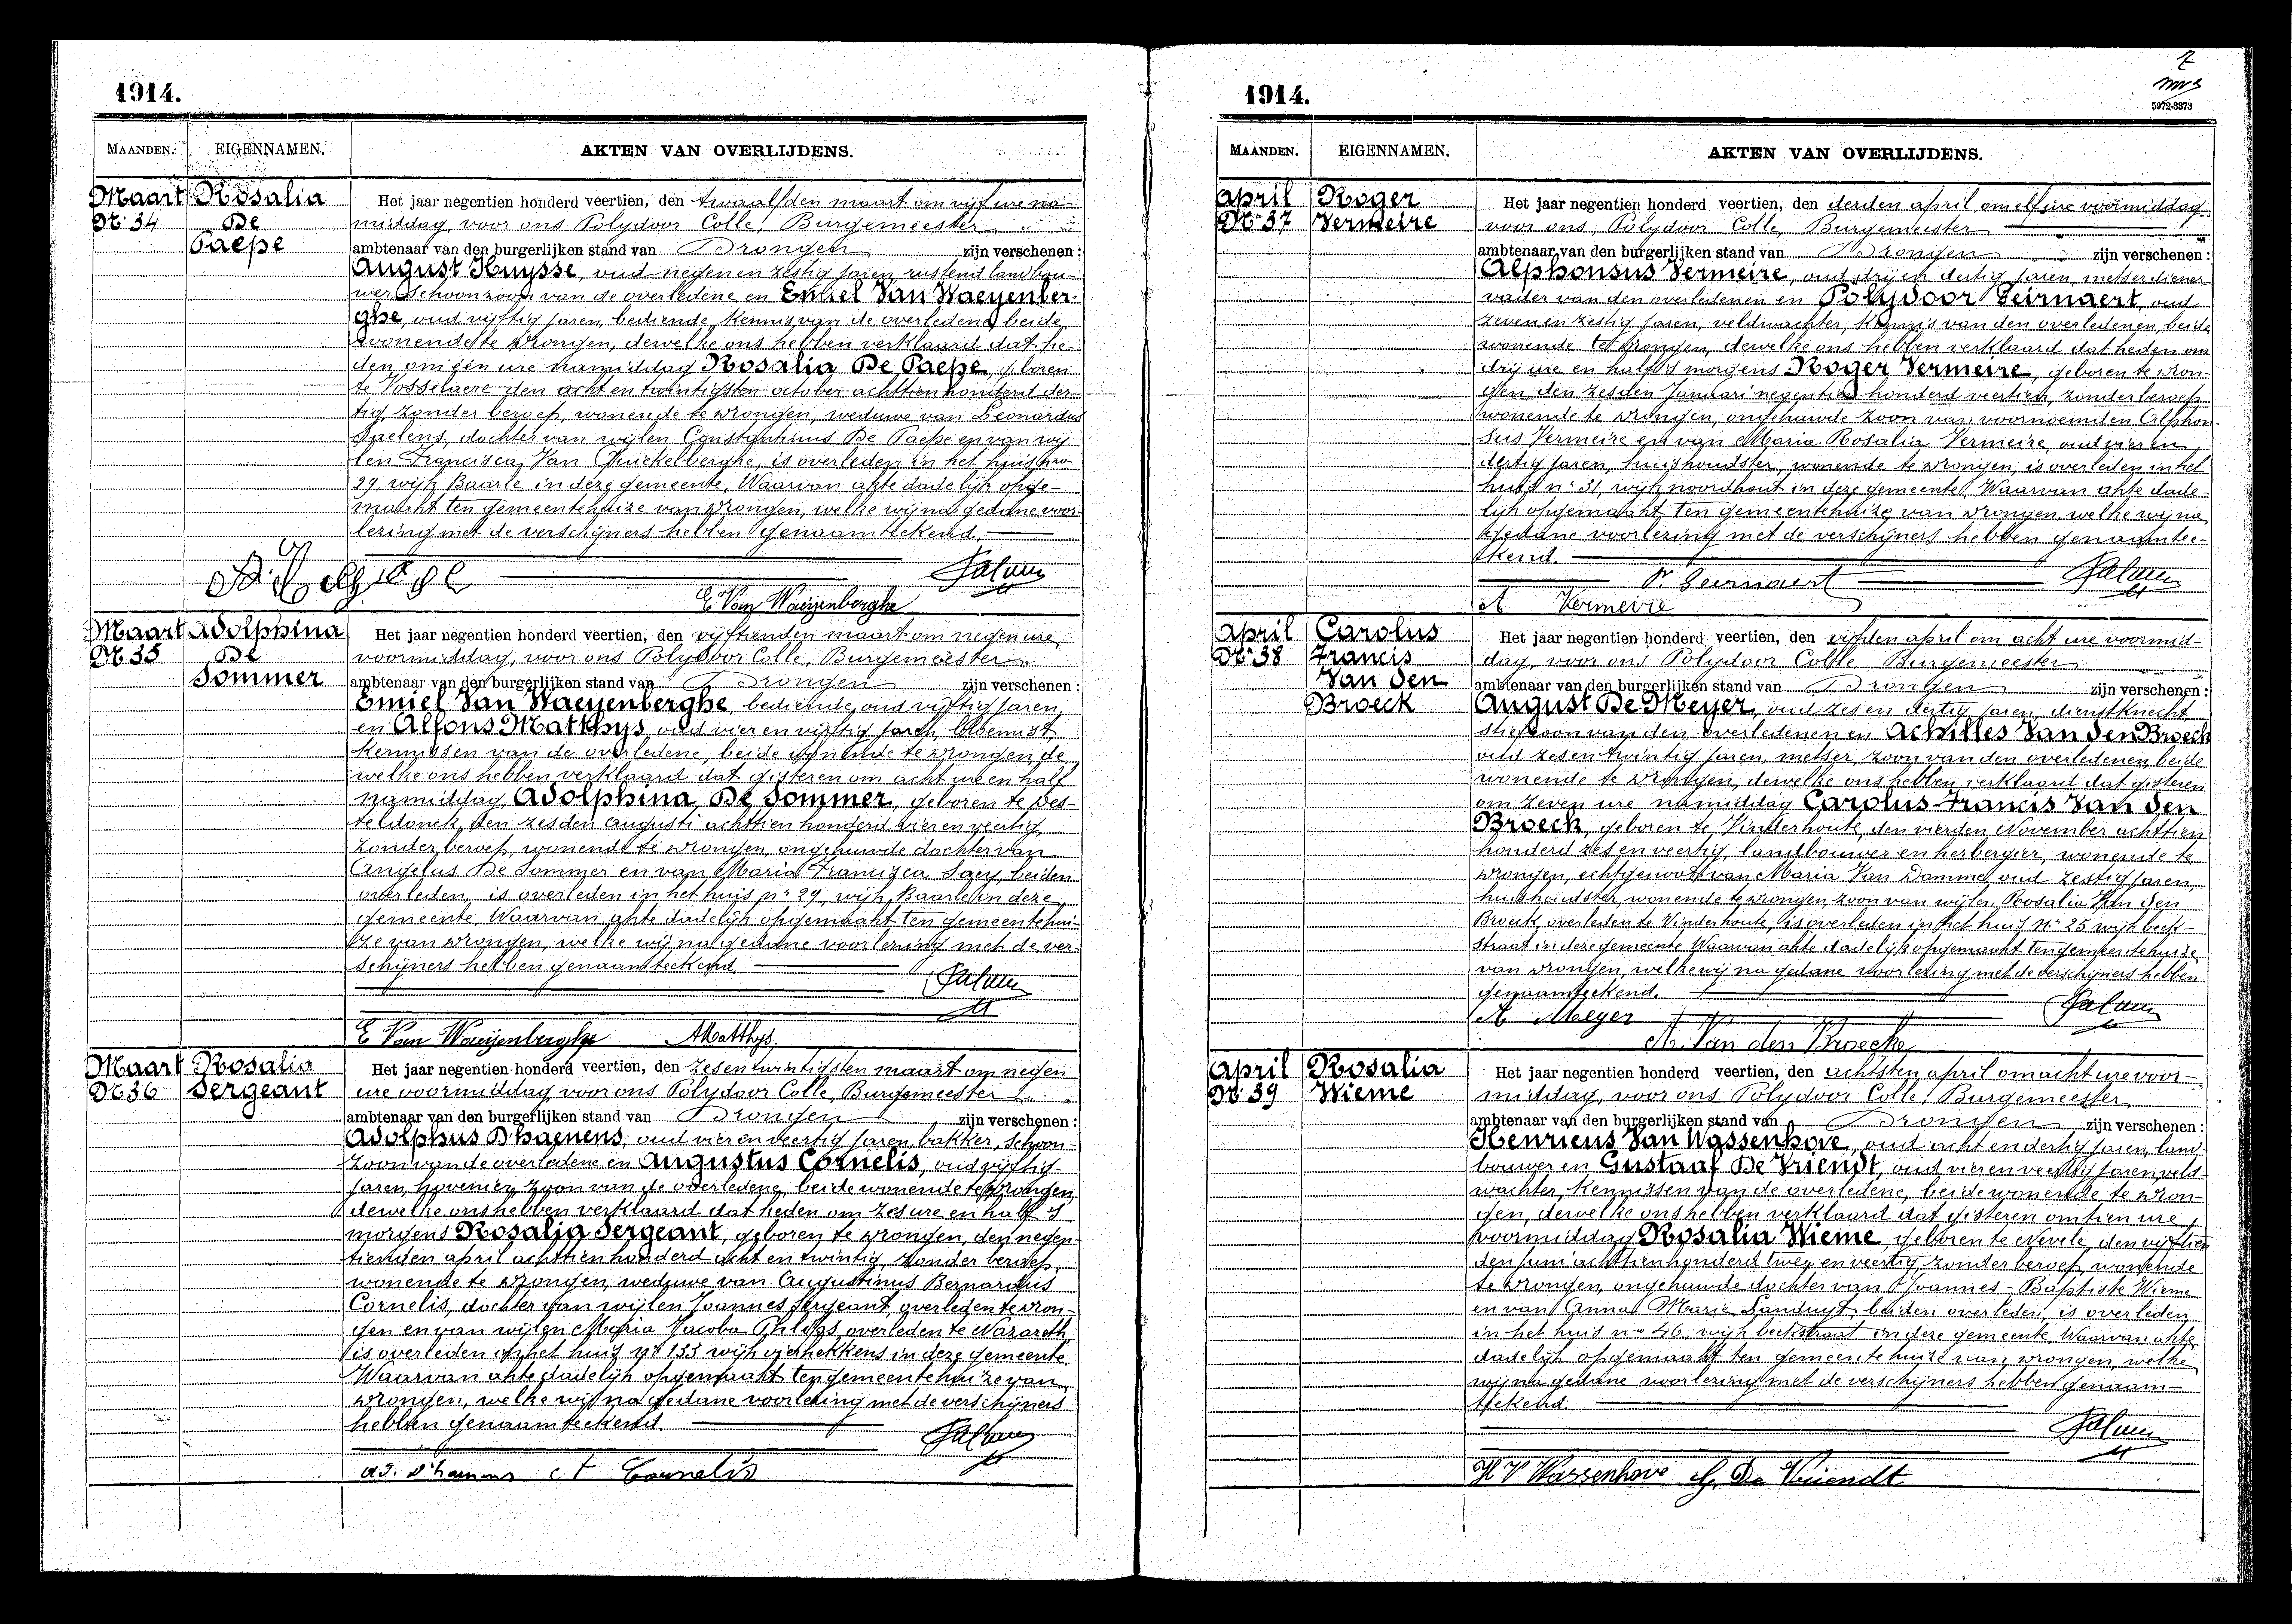 1914.
MAANDEN. EIGENNAMEN. AKTEN VAN OVERLIJDENS.
Maart
No 34
Rosalia
De
Paepe
Het jaar negentien honderd veertien, den twaalfden maart om vijf ure na-
middag, voor ons Polydoor Colle, Burgemeester
ambtenaar van den burgerlijken stand van Drongen zijn verschenen :
August Huysse, oud negen en zestig jaren, rustend landbou-
wer schoonzoon van de overledene en Emiel Van Waeyenber-
ghe, oud vijftig jaren, bediende, kennis van de overledene, beide
wonende te Drongen, dewelke ons hebben verklaard dat he-
den om één ure namiddag Rosalia De Paepe, geboren
te Vosselaere den acht en twintigsten october achttien honderd der-
tig, zonder beroep, wonende te Drongen, weduwe van Leonardus
Saelens, dochter van wijlen Constantinus De Paepe en van wij
len Francisca Van Quickelberghe, is overleden in het huis nro
29 wijk Baarle in deze gemeente, Waarvan akte dadelijk opge-
maakt ten gemeentehuize van Drongen, welke wij na gedane voor
lezing met de verschijners hebben genaamteekend.
E Van Waeijenberghe
Maart
No 35
Adolphina
De
Sommer
Het jaar negentien honderd veertien, den vijftienden maart om negen ure
voormiddag, voor ons Polydoor Colle, Burgemeester
ambtenaar van den burgerlijken stand van Drongen zijn verschenen :
Emiel Van Waeyenberghe, bediende, oud vijftig jaren
en Alfons Matthys, oud vier en vijftig jaren, bloemist
kennissen van de overledene, beide wonende te Drongen, de
welke ons hebben verklaard dat gisteren om acht ure en half
namiddag, Adolphina De Sommer, geboren te Des-
teldonck, den zesden augusti achttien honderd vier en veertig,
zonder beroep, wonende te Drongen, ongehuwde dochter van
Angelus De Sommer en van Maria Francisca Saey, beiden
overleden, is overleden in het huis nr 29, wijk Baarle in deze
gemeente, Waarvan akte dadelijk opgemaakt ten gemeentehui-
ze van Drongen, welke wij na gedane voorlezing met de ver-
schijners hebben genaamteekend.
E Van Waeijenberghe AMatthys.
Maart
No 36
Rosalia
Sergeant
Het jaar negentien honderd veertien, den zes en twintigsten maart om negen
ure voormiddag voor ons Polydoor Colle, Burgemeester
ambtenaar van den burgerlijken stand van Drongen zijn verschenen :
Adolphus D'haenens, oud vier en veertig jaren, bakker, schoon-
zoon van de overledene en Augustus Cornelis, oud vijftig
jaren, hovenier, zoon van de overledene, beide wonende te Drongen,
dewelke ons hebben verklaard dat heden om zes ure en half 's
morgens Rosalia Sergeant, geboren te Drongen, den negen-
tienden april achttien honderd acht en twintig, zonder beroep,
wonende te Drongen, weduwe van Augustinus Bernardus
Cornelis, dochter van wijlen Joannes Sergeant, overleden te Dron-
gen en van wijlen Maria Jacoba overleden te Nazareth,
is overleden in het huis nr 155 wijk vierhekkens in deze gemeente.
Waarvan akte dadelijk opgemaakt ten gemeentehuize van
Drongen, welke wij na gedane voorlezing met de verschijners
hebben genaamteekend.
ad. D'haenens A Cornelis
1914.
5972-3373
MAANDEN. EIGENNAMEN. AKTEN VAN OVERLIJDENS.
April
No 37
Roger
Vermeire
Het jaar negentien honderd veertien, den derden april om elf ure voormiddag,
voor ons, Polydoor Colle, Burgemeester
ambtenaar van den burgerlijken stand van Drongen zijn verschenen :
Alphonsus Vermeire, oud drij en dertig jaren, metserdiener
vader van den overledenen en Polydoor Seirnaert, oud
zeven en zestig jaren, veldwachter, kennis van den overledenen, beide
wonende te Drongen, dewelke ons hebben verklaard dat heden om
drij ure en half 's morgens Roger Vermeire, geboren te Dron-
gen, den zesden Januari negentien honderd veertien, zonder beroep
wonende te Drongen, ongehuwde zoon van voornoemden Alphon-
sus Vermeire en van Maria Rosalia Vermeire, oud vier en
dertig jaren, huishoudster, wonende te Drongen, is overleden in het
huis nr 31, wijk noordhout in deze gemeente, Waarvan akte dade-
lijk opgemaakt ten gemeentehuize van Drongen, welke wij na
gedane voorlezing met de verschijners hebben genaamtee-
kend.
P. Seirnaert
A Vermeire
April
No 38
Carolus
Francis
Van den
Broeck
Het jaar negentien honderd veertien, den vijfden april om acht ure voormid-
dag, voor ons Polydoor Colle, Burgemeester
ambtenaar van den burgerlijken stand van Drongen zijn verschenen :
August De Meyer, oud zes en dertig jaren, dienstknecht
stiefzoon van den overledenen en Achilles Van den Broeck
oud zes en twintig jaren, metser, zoon van den overledenen, beide
wonende te Drongen, dewelke ons hebben verklaard dat gisteren
om zeven ure namiddag Carolus-Francis Van den
Broeck, geboren te Vinderhoute, den vierden November achttien
honderd zes en veertig, landbouwer en herbergier, wonende te
Drongen, echtgenoot van Maria Van Damme, oud zestig jaren,
huishoudster, wonende te Drongen, zoon van wijlen Rosalia Van den
Broeck, overleden te Vinderhoute, is overleden in het huis nr 25 wijk beek-
straat in deze gemeente Waarvan akte dadelijk opgemaakt ten gemeentehuize
van Drongen, welke wij na gedane voorlezing met de verschijners hebben
genaamteekend.
A Meyer
A. Van den Broecke
April
No 39
Rosalia
Wieme
Het jaar negentien honderd veertien, den achtsten april om acht ure voor-
middag, voor ons Polydoor Colle, Burgemeester
ambtenaar van den burgerlijken stand van Drongen zijn verschenen :
Henricus Van Wassenhove, oud acht en dertig jaren, land-
bouwer en Gustaaf De Vriendt, oud vier en veertig jaren, veld-
wachter, kennissen van de overledene, beide wonende te Dron-
gen, dewelke ons hebben verklaard dat gisteren om tien ure
voormiddag Rosalia Wieme, geboren te Nevele, den vijftien
den juni achttien honderd twee en veertig, zonder beroep, wonende
te Drongen, ongehuwde dochter van Joannes-Baptiste Wieme
en van Anna Marie Landuyt, beiden overleden, is overleden
in het huis nr 46, wijk beekstraat in deze gemeente, Waarvan akte
dadelijk opgemaakt ten gemeentehuize van Drongen, welke
wij na gedane voorlezing met de verschijners hebben genaam-
teekend.
H V Wassenhove G. De Vriendt